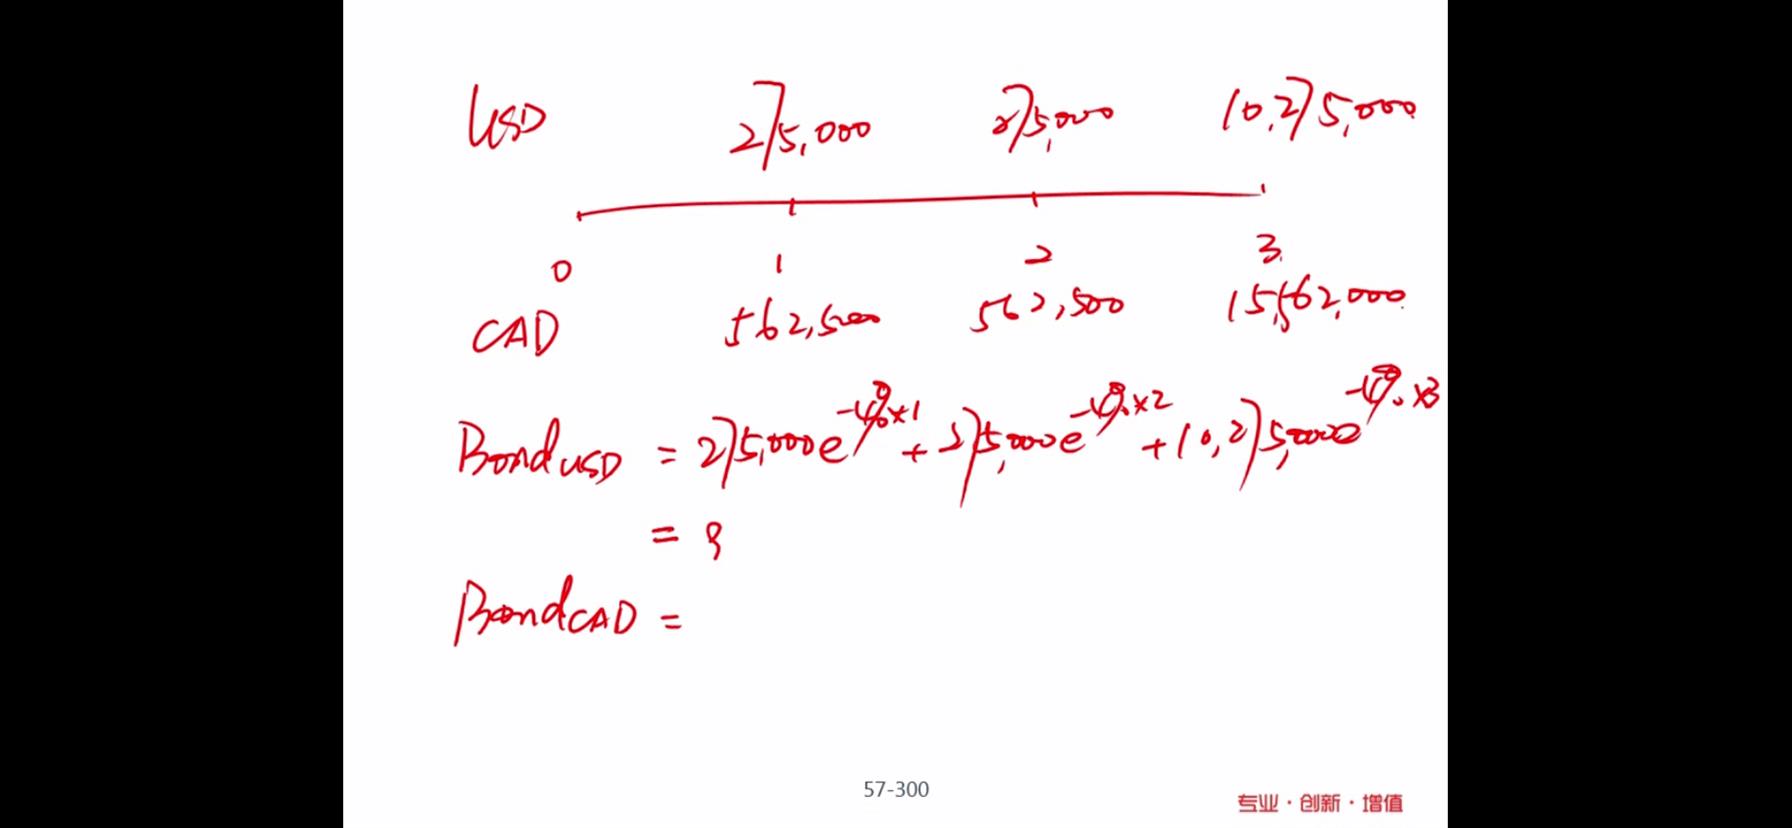 USD 275,000 275,000 10,275,000
0 1 2 3
CAD 562,500 562,500 15,562,000
Bond USD = 275,000e^-4%×1 + 275,000e^-4%×2 + 10,275,000e^-4%×3
= 9
Bond CAD =
57-300
专业·创新·增值